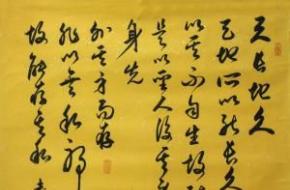 天長地久
天地所以能長久
以其不自生故
是以聖人後其
身先
外其身而存
非以無私邪
故能成其私